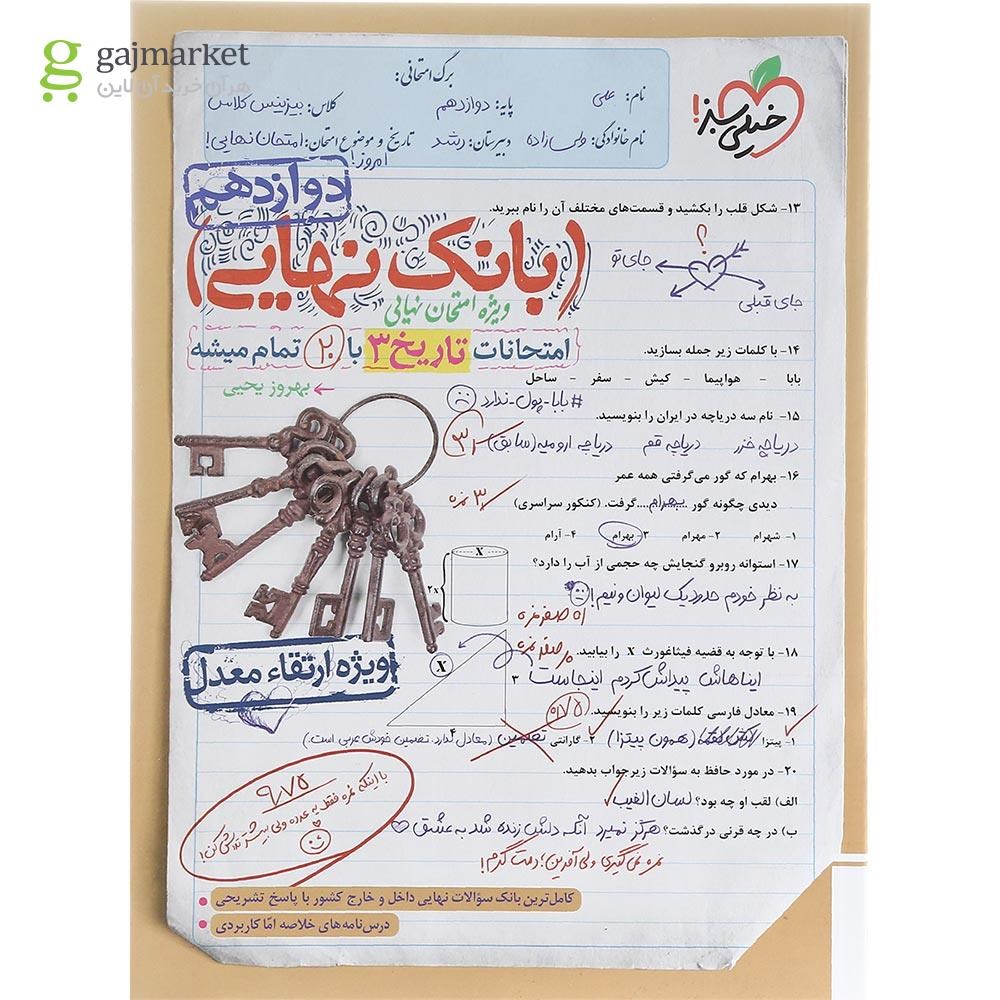 gajmarket
هرآن خرید آن لاین
خیلی سبز!
برگ امتحانی:
نام: علی
پایه: دوازدهم
کلاس: بیزینس کلاس
نام خانوادگی: ولی زاده
دبیرستان: رشد
تاریخ و موضوع امتحان: امتحان نهایی!
امروز!
دوازدهم
(بانک نهایی)
ویژه امتحان نهایی
امتحانات تاریخ ۳ با ۲۰ تمام میشه
بهروز یحیی
۱۳- شکل قلب را بکشید و قسمت‌های مختلف آن را نام ببرید.
؟
جای تو
جای قبلی
۱۴- با کلمات زیر جمله بسازید.
بابا - هواپیما - کیش - سفر - ساحل
#بابا-پول-ندارد
۱۵- نام سه دریاچه در ایران را بنویسید.
دریاچه خزر دریاچه قم دریاچه ارومیه (سابق)
۱۶- بهرام که گور می‌گرفتی همه عمر
دیدی چگونه گور ..بهرام....گرفت. (کنکور سراسری)
۳ نمره
۱- شهرام ۲- مهرام ۳- بهرام ۴- آرام
۱۷- استوانه روبرو گنجایش چه حجمی از آب را دارد؟
x
2x
به نظر خودم حدود یک لیوان و نیم!
اه صفر نمره
۱۸- با توجه به قضیه فیثاغورث x را بیابید.
صفر نمره
ایناهاش پیداش کردم اینجاست
X
۳
۴
۱۹- معادل فارسی کلمات زیر را بنویسید.
۰/۷۵
۱- پیتزا (همون پیتزا) ۲- گارانتی تضمین (معادل ندارد. تضمین خودش عربی است.)
۲۰- در مورد حافظ به سؤالات زیر جواب بدهید.
الف) لقب او چه بود؟ لسان الغیب
ب) در چه قرنی درگذشت؟ هرگز نمیرد آنکه دلش زنده شد به عشق
نمره نمی‌گیری ولی آفرین؛ دمت گرم!
ویژه ارتقاء معدل
۹/۷۵
با اینکه نمره فقط یه عدده ولی بیشتر تلاش کن!
کامل‌ترین بانک سؤالات نهایی داخل و خارج کشور با پاسخ تشریحی
درس‌نامه‌های خلاصه امّا کاربردی